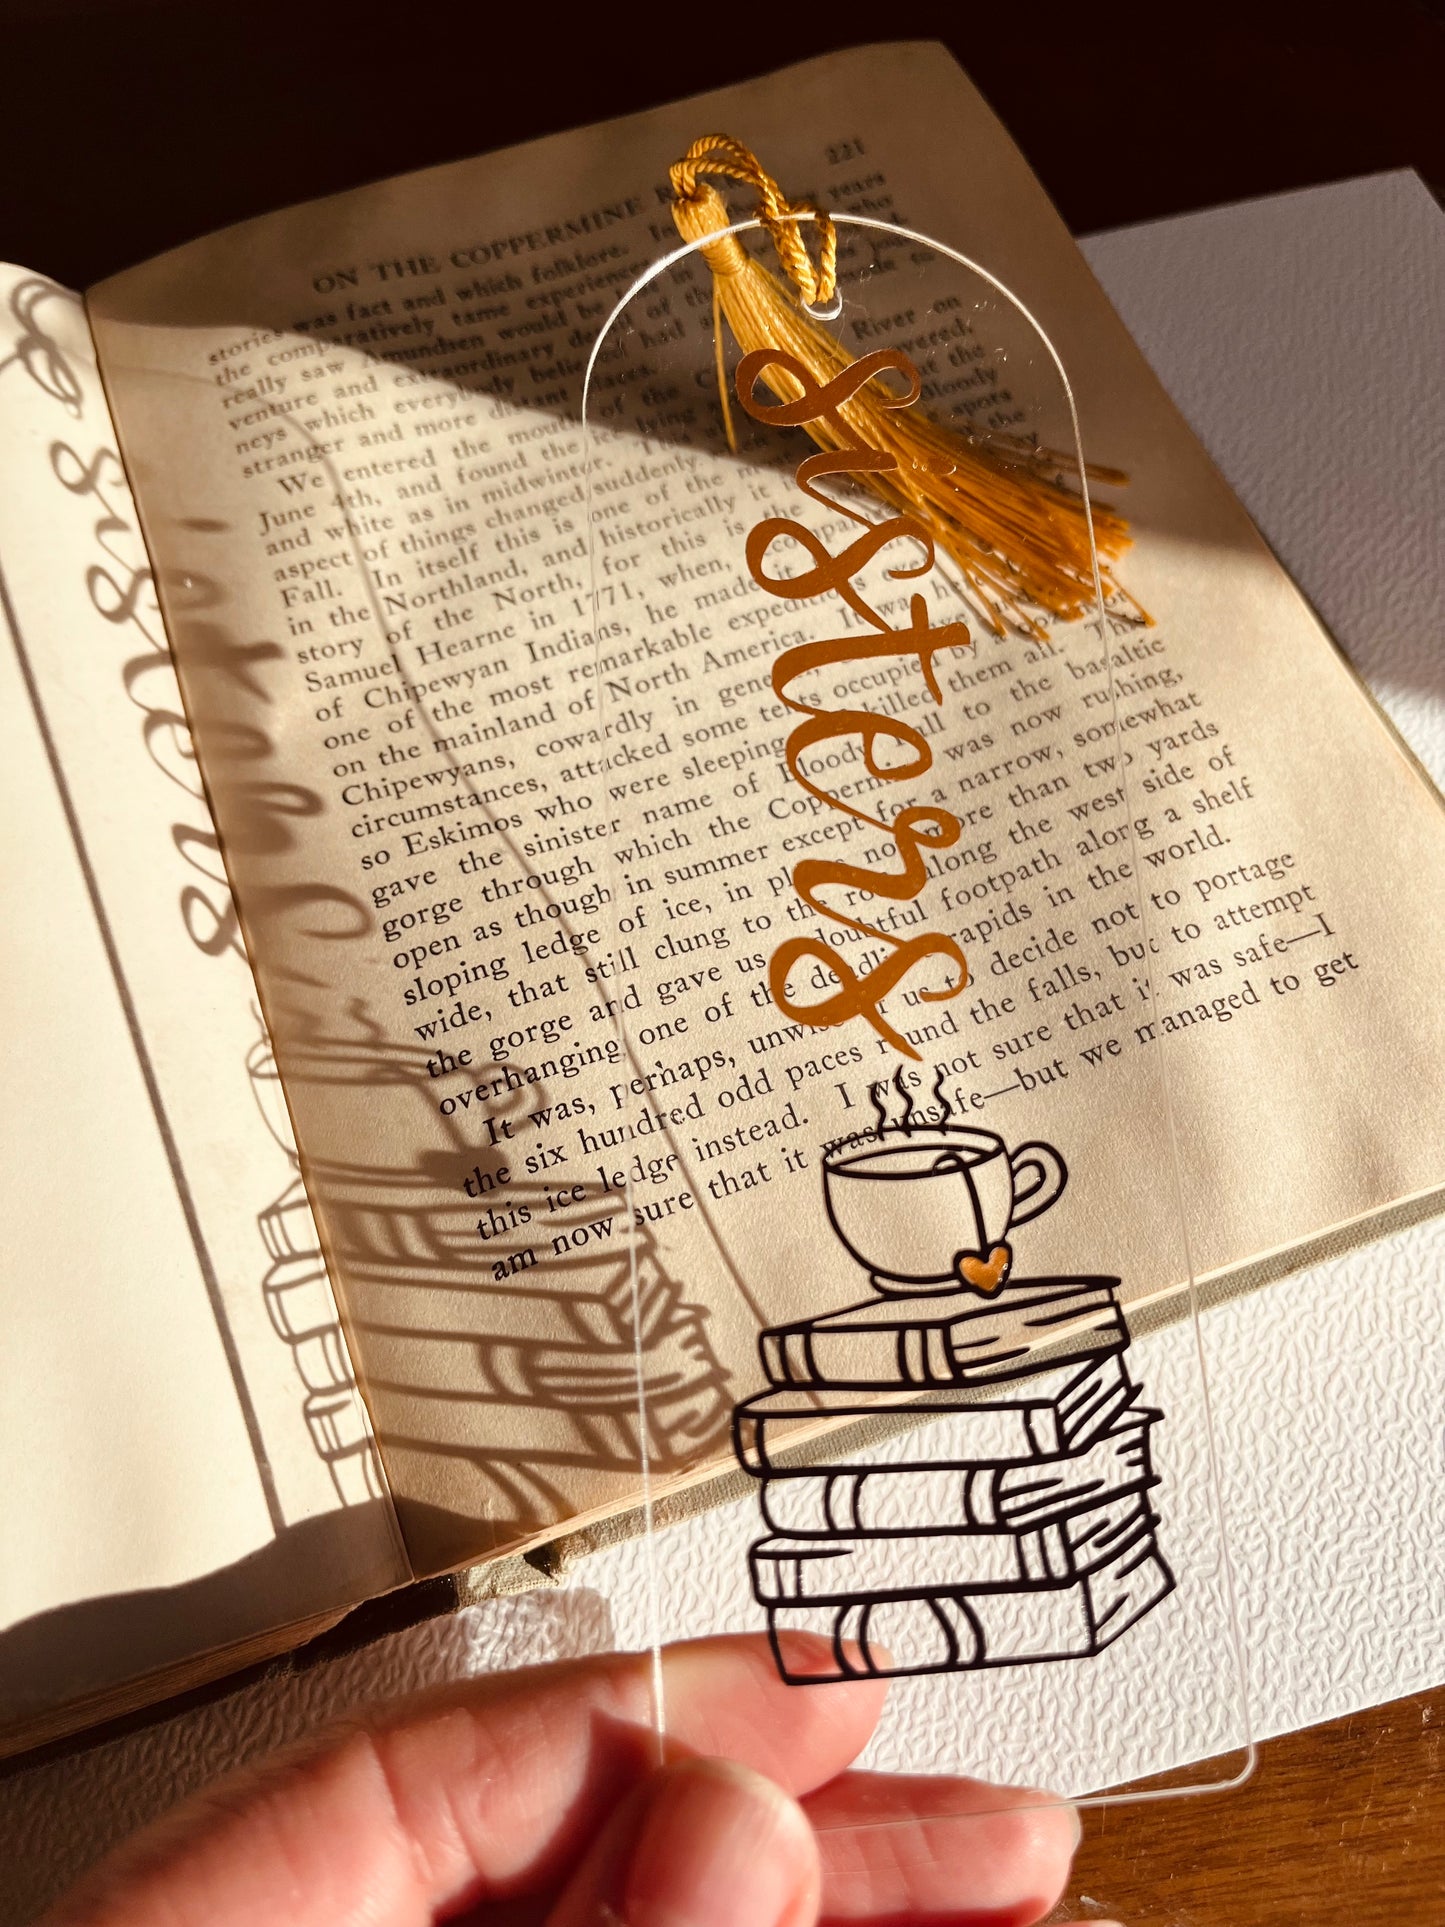 221
ON THE COPPERMINE
stories was fact and which folklore. In years
the comparatively tame experiences who
really saw Amundsen would be lost in
venture and extraordinary detail of the
neys which everybody believed had to
stranger and more distant places.
We entered the mouth of the River on
June 4th, and found the ice lying covered.
and white as in midwinter. the
aspect of things changed suddenly. Bloody
Fall. In itself this is one of the spots
in the Northland, and historically it the
story of the North, for this is the
Samuel Hearne in 1771, when,
of Chipewyan Indians, he made
one of the most remarkable expeditions
on the mainland of North America. It was
Chipewyans, cowardly in general,
circumstances, attacked some tents occupied by a
so Eskimos who were sleeping killed them all. This
gave the sinister name of Bloody Fall to the basaltic
gorge through which the Coppermine was now rushing,
open as though in summer except for a narrow, somewhat
sloping ledge of ice, in places no more than two yards
wide, that still clung to the along the west side of
the gorge and gave us doubtful footpath along a shelf
overhanging one of the rapids in the world.
It was, perhaps, unwise of us to decide not to portage
the six hundred odd paces round the falls, but to attempt
this ice ledge instead. I was not sure that it was safe—I
am now sure that it was unsafe—but we managed to get
sisters